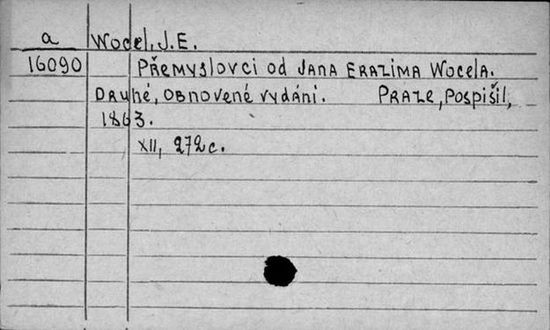 a Wocel, J.E.
16090 Přemyslovci od Jana Erazima Wocela.
Druhé, obnovené vydáni. Praze, Pospišil,
1863.
XII, 272c.